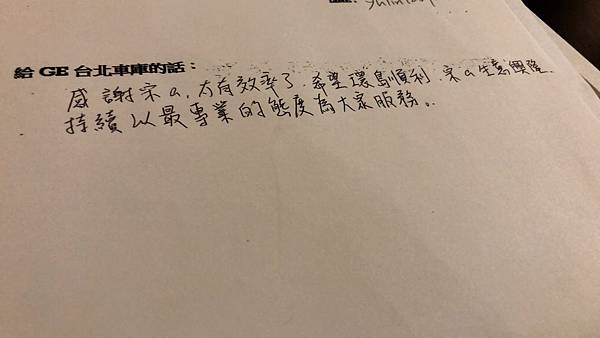 給 GE 台北車庫的話：
感謝宋a，太有效率了．希望環島順利．宋a生意興隆．
持續以最專業的態度為大眾服務。